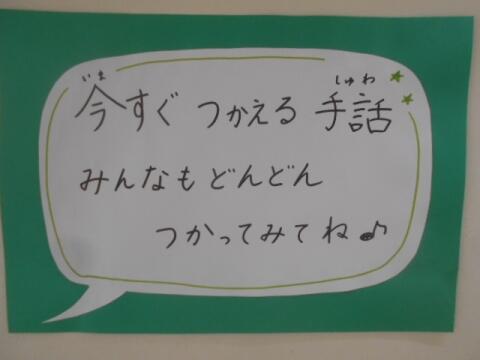 いま しゅわ
今すぐ つかえる 手話
みんなも どんどん
つかってみてね♪